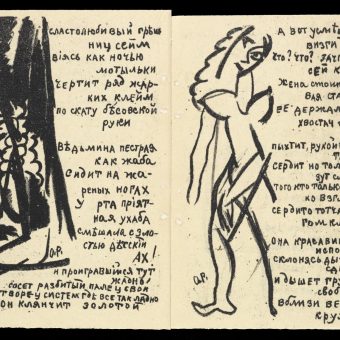 сластолюбивый грѣш
ниц сейм
віясь как ночью
мотыльки
чертит ряд жар-
ких клейм
по скату бѣсовской
руки
Вѣдьмина пестрая
как жаба
сидит на жа-
реных ногах
У рта пріят-
ная ухаба
смѣшала с зло-
стью дѣтскій
Ах!
и проигравшійся тут
жадно
сосет разбитый палец свой
творец систем гдѣ все так ладно
он клянчит золотой
О.Р.
А вот усмѣ
визги
что? что? зач
сей к
жена стои
вая ста
ее держал
хвостач
пыхтит, рукой
т
сердит но тол
зуб с
того кто только
ко взг
сердито тотча
ром кл
О.Р.
она кравави
испо
склонясь ды
сад
и дышет гру
своб
вблизи ве
кру